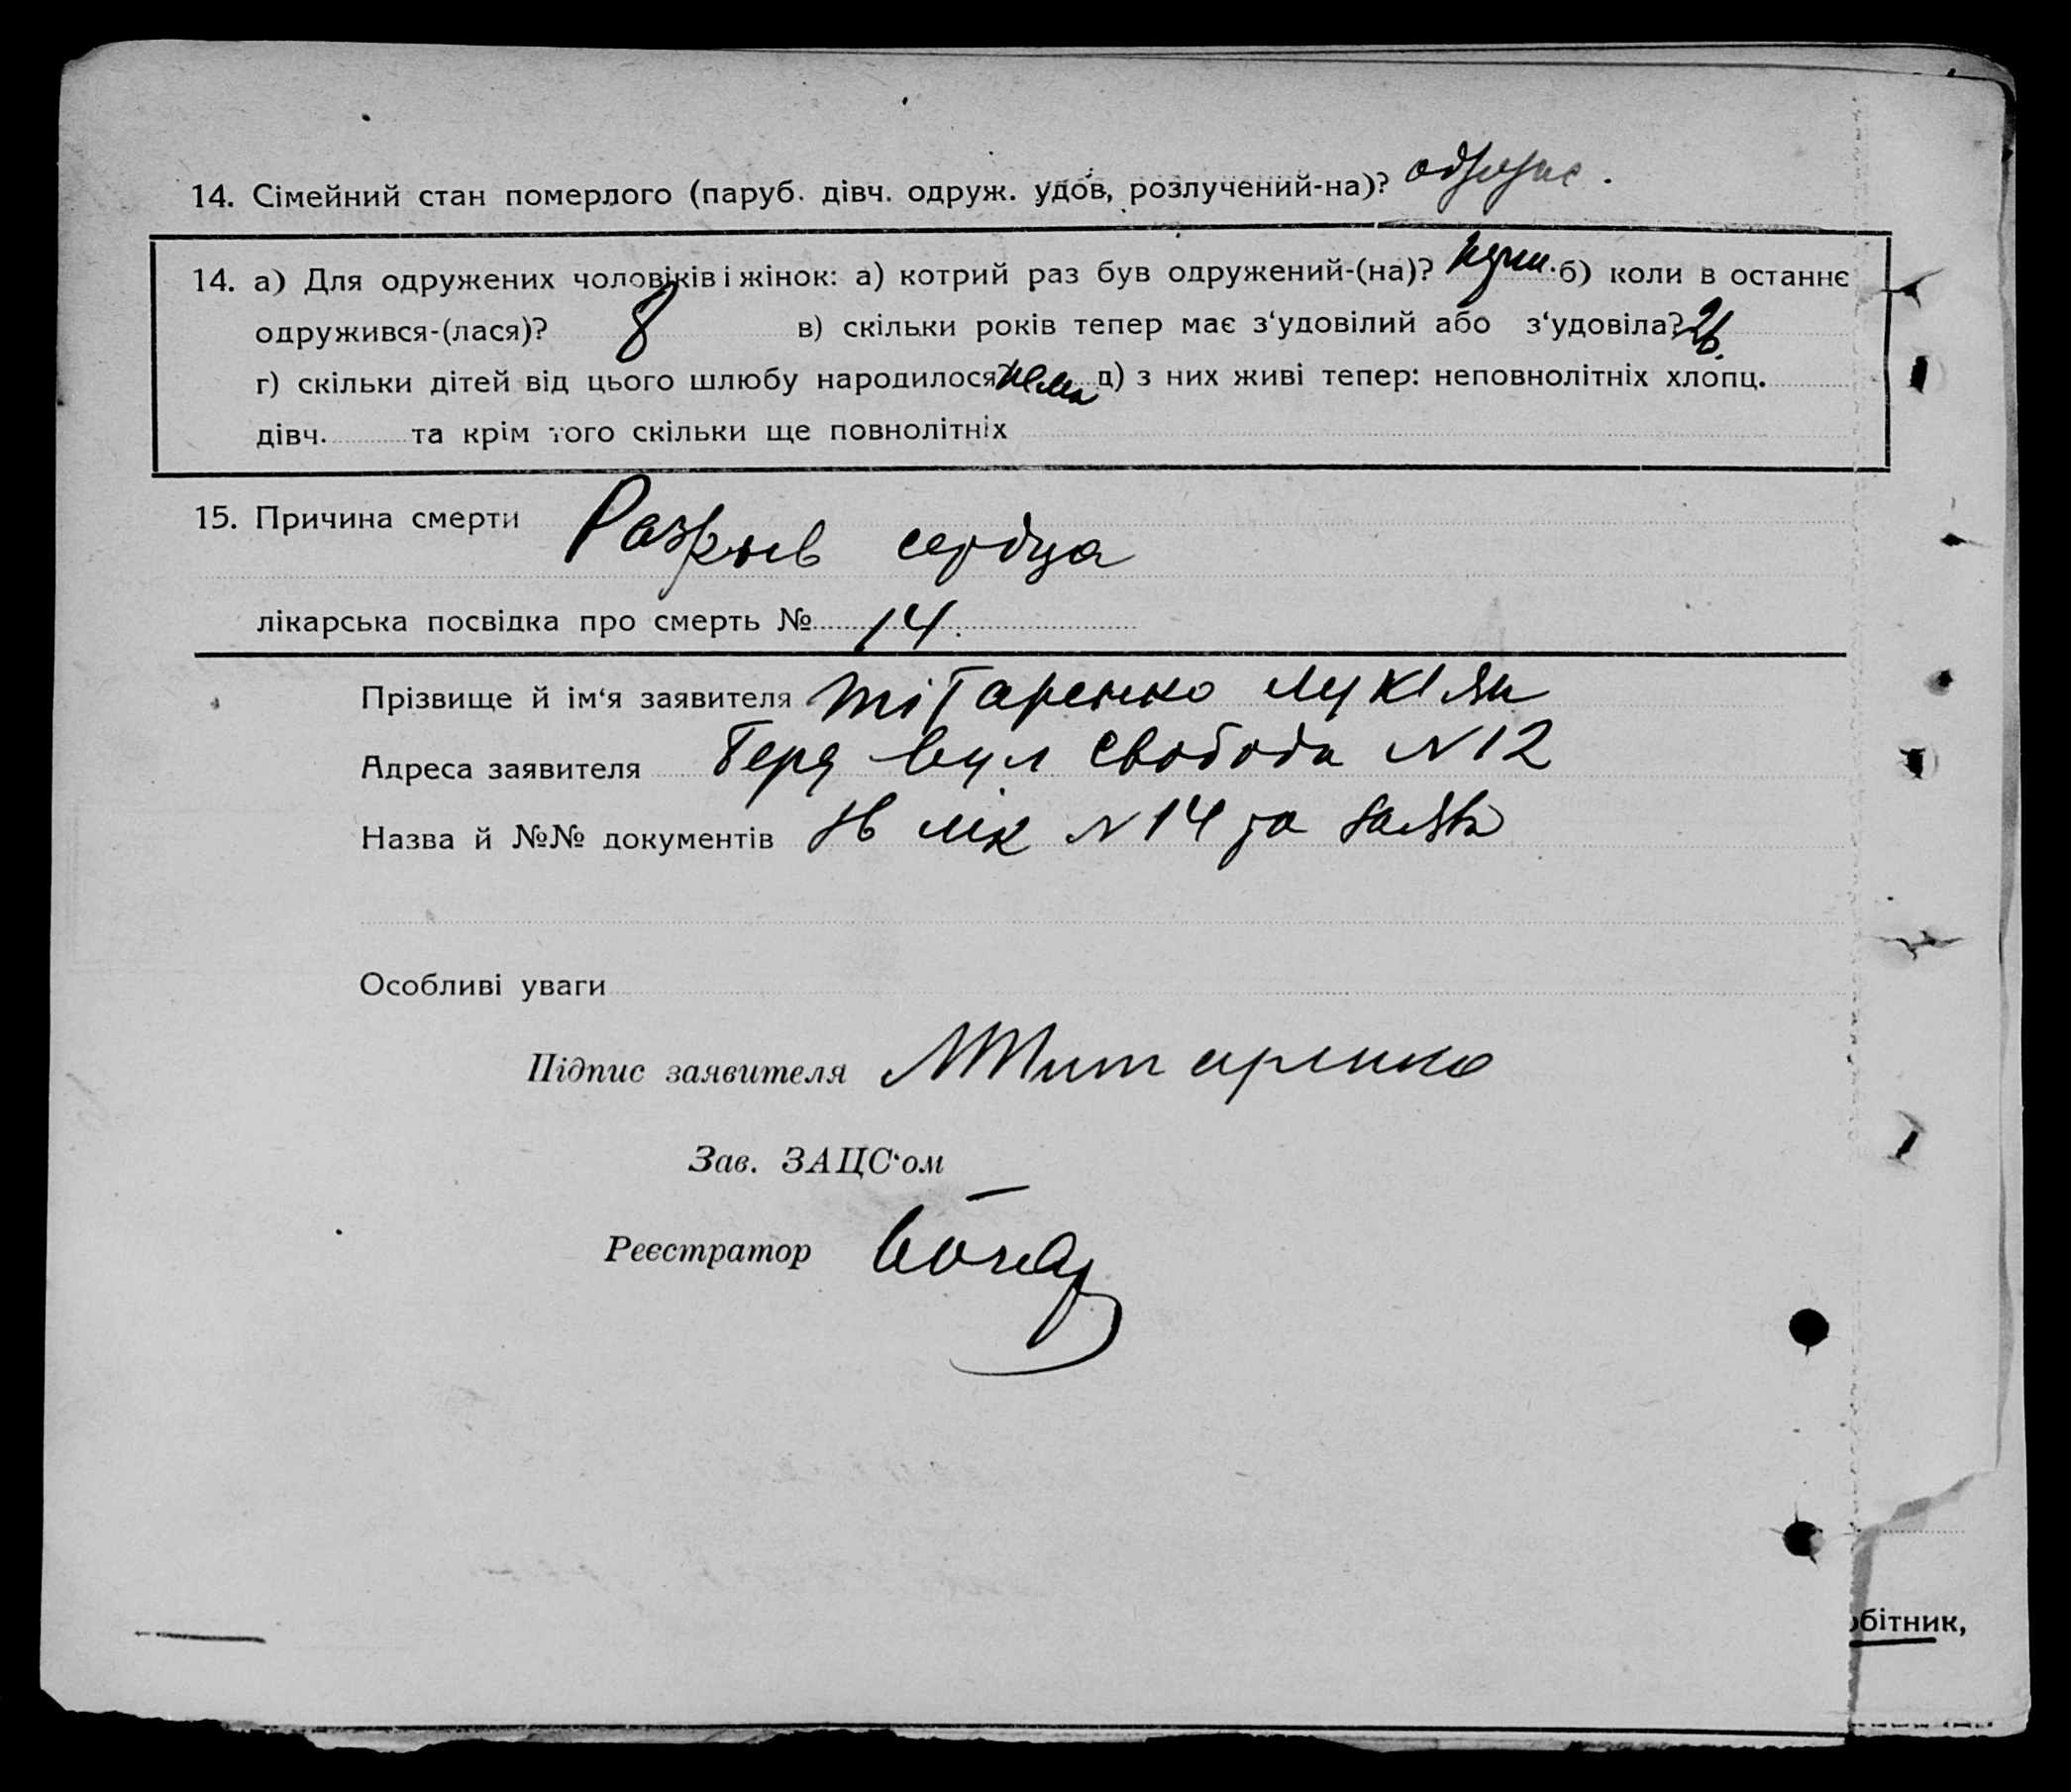 14. Сімейний стан померлого (паруб. дівч. одруж. удов, розлучений-на)? одруж.
14. а) Для одружених чоловіків і жінок: а) котрий раз був одружений-(на)? перш. б) коли в останнє
одружився-(лася)? 8 в) скільки років тепер має з‘удовілий або з‘удовіла? 26.
г) скільки дітей від цього шлюбу народилося? нема д) з них живі тепер: неповнолітніх хлопц.
дівч. та крім того скільки ще повнолітніх
15. Причина смерти Разрыв сердца
лікарська посвідка про смерть № 14.
Прізвище й ім‘я заявителя Тітаренко Лукіян
Адреса заявителя вул Свободи N 12
Назва й №№ документів лік N 14 та заява
Особливі уваги
Підпис заявителя Титаренко
Зав. ЗАЦС‘ом —
Реєстратор
обітник,